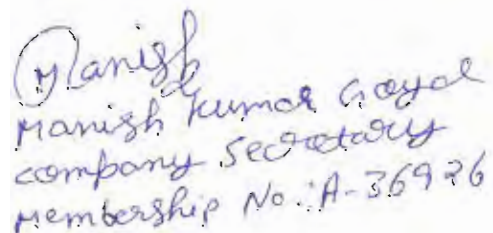 Manish
Manish Kumar Goyal
Company Secretary
Membership No.: A-36926